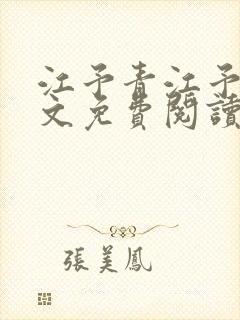 江予青江予
文免費閱讀
張美鳳